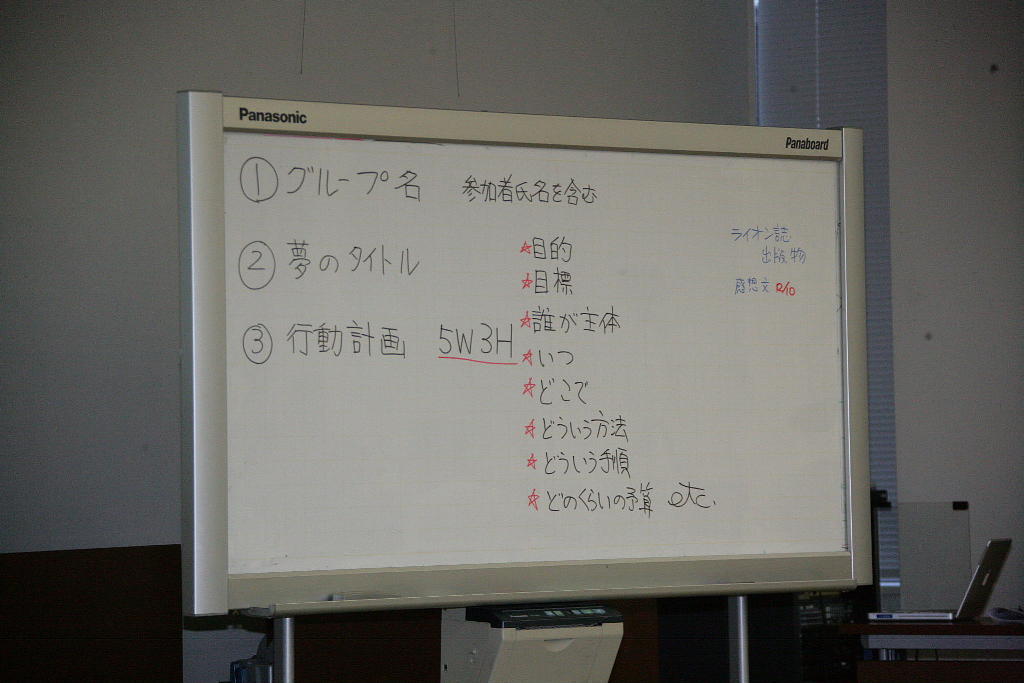 Panasonic
Panaboard
① グループ名 参加者氏名を含む
② 夢のタイトル
③ 行動計画 5W3H
☆目的
☆目標
☆誰が主体
☆いつ
☆どこで
☆どういう方法
☆どういう手順
☆どのくらいの予算 etc.
ライオン誌
出版物
感想文 2/10